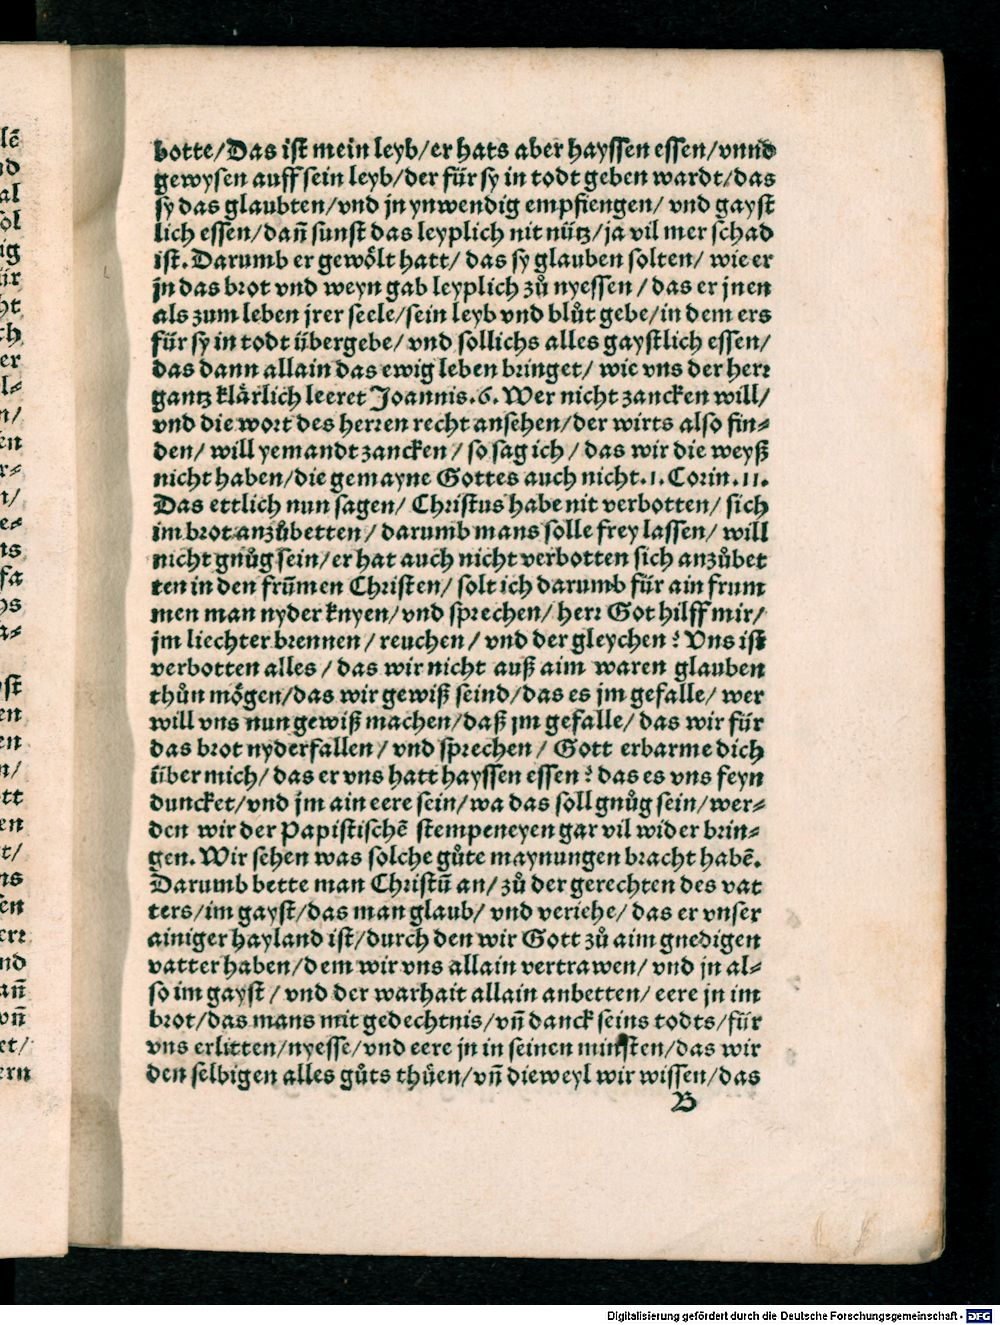 botte/Das ist mein leyb/er hats aber hayssen essen/vnnd
gewysen auff sein leyb/der für sy in todt geben wardt/das
sy das glaubten/vnd jn ynwendig empfiengen/ vnd gayst
lich essen/dañ sunst das leyplich nit nütz/ja vil mer schad
ist. Darumb er gewölt hatt/ das sy glauben solten/ wie er
jn das brot vnd weyn gab leyplich zů nyessen / das er jnen
als zum leben jrer seele/sein leyb vnd blůt gebe/in dem ers
für sy in todt übergebe/ vnd sollichs alles gaystlich essen/
das dann allain das ewig leben bringet/ wie vns der herr
gantz klärlich leeret Joannis.6. Wer nicht zancken will/
vnd die wort des herren recht ansehen/der wirts also fin⸗
den/ will yemandt zancken / so sag ich / das wir die weyß
nicht haben/die gemayne Gottes auch nicht.1. Corin. 11.
Das ettlich nun sagen/ Christus habe nit verbotten/ sich
im brot anzůbetten/ darumb mans solle frey lassen/ will
nicht gnůg sein/er hat auch nicht verbotten sich anzůbet
ten in den frūmen Christen/ solt ich darumb für ain frum
men man nyder knyen/vnd sprechen/ herr Got hilff mir/
jm liechter brennen / reuchen / vnd der gleychen? Vns ist
verbotten alles / das wir nicht auß aim waren glauben
thůn mögen/das wir gewiß seind/das es jm gefalle/ wer
will vns nun gewiß machen/daß jm gefalle/ das wir für
das brot nyderfallen / vnd sprechen / Gott erbarme dich
über mich/ das er vns hatt hayssen essen? das es vns feyn
duncket/vnd jm ain eere sein/wa das soll gnůg sein/wer⸗
den wir der Papistischē stempeneyen gar vil wider brin⸗
gen. Wir sehen was solche gůte maynungen bracht habē.
Darumb bette man Christū an/ zů der gerechten des vat
ters/im gayst/das man glaub/ vnd veriehe/ das er vnser
ainiger hayland ist/durch den wir Gott zů aim gnedigen
vatter haben/dem wir vns allain vertrawen/ vnd jn al⸗
so im gayst / vnd der warhait allain anbetten/ eere jn im
brot/das mans mit gedechtnis/vñ danck seins todts/für
vns erlitten/nyesse/vnd eere jn in seinen minsten/das wir
den selbigen alles gůts thüen/vñ dieweyl wir wissen/das
B
Digitalisierung gefördert durch die Deutsche Forschungsgemeinschaft - DFG